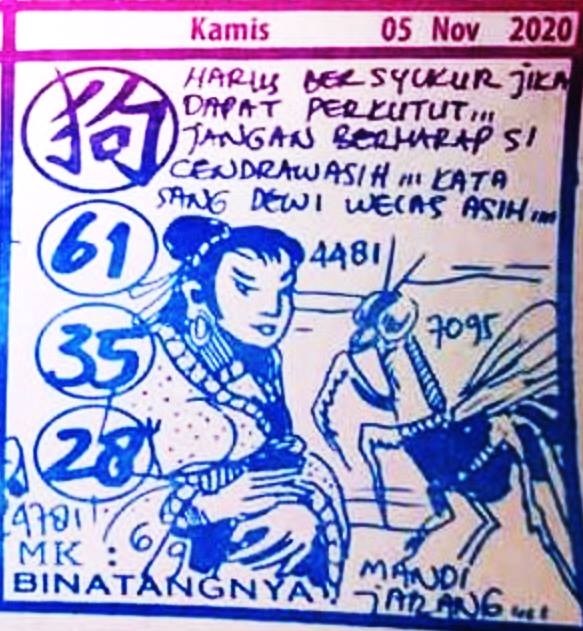 Kamis 05 Nov 2020
狗
HARUS BERSYUKUR JIKA
DAPAT PERKUTUT...
JANGAN BERHARAP SI
CENDRAWASIH... KATA
SANG DEWI WELAS ASIH...
61
4481
7095
35
28
4781
MK : 6 9
BINATANGNYA:
MANDI
JARANG....